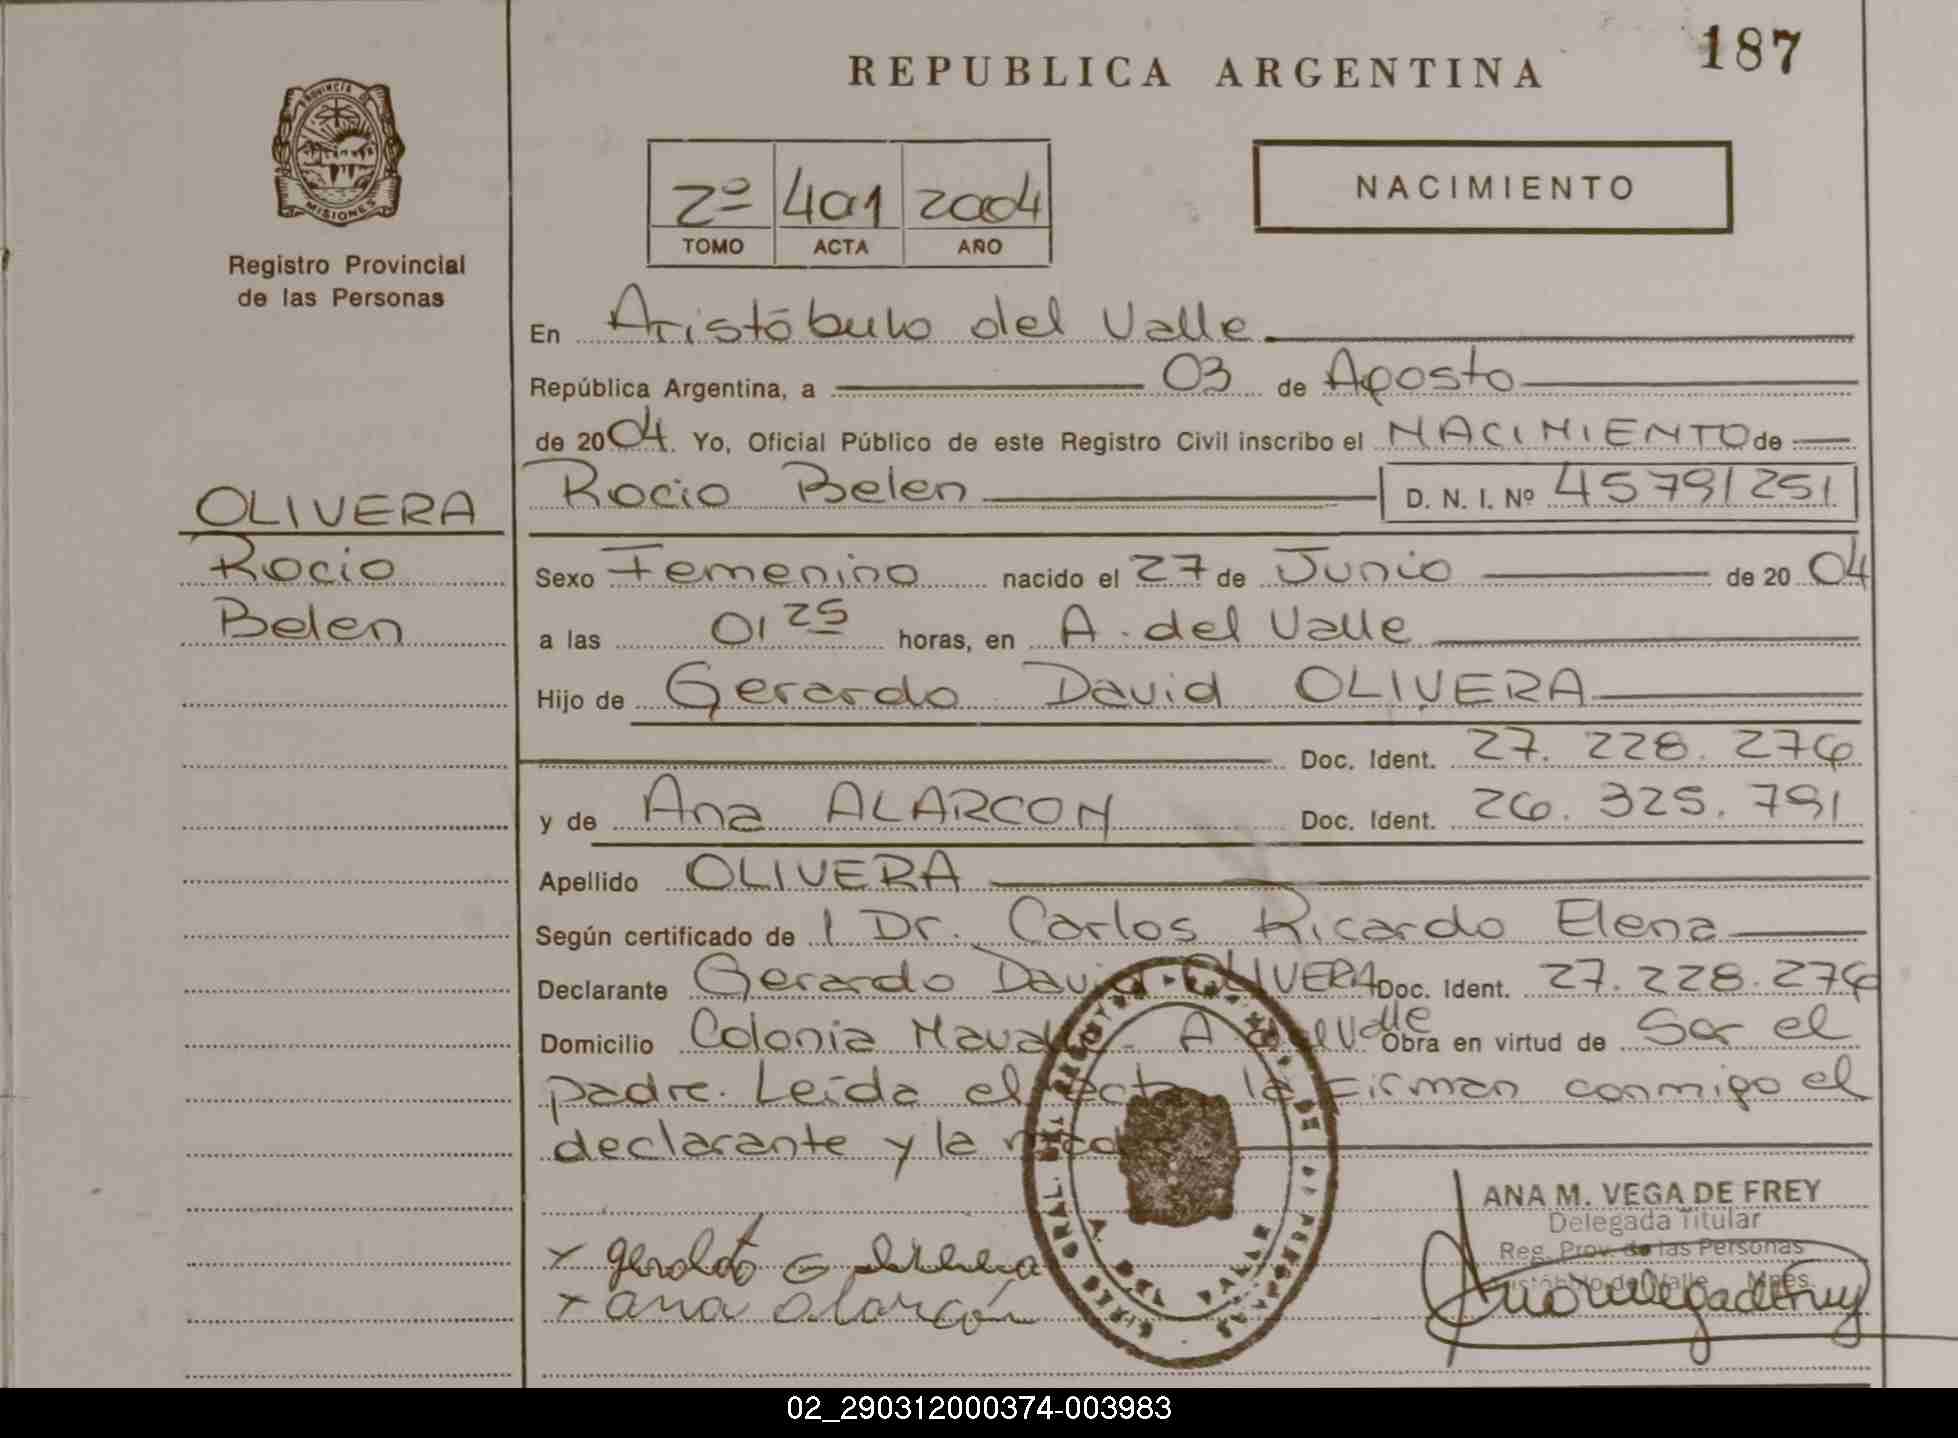 REPUBLICA ARGENTINA
187
PROVINCIA DE
MISIONES
Registro Provincial
de las Personas
2º 401 2004
TOMO ACTA AÑO
NACIMIENTO
En Aristóbulo del Valle
República Argentina, a 03 de Agosto
de 2004. Yo, Oficial Público de este Registro Civil inscribo el NACIMIENTO de
OLIVERA
Rocio
Belen
Rocio Belen D. N. I. Nº 45791251
Sexo Femenino nacido el 27 de Junio de 2004
a las 01 25 horas, en A. del Valle
Hijo de Gerardo David OLIVERA
Doc. Ident. 27.228.276
y de Ana ALARCON Doc. Ident. 26.325.791
Apellido OLIVERA
Según certificado de l Dr. Carlos Ricardo Elena
Declarante Gerardo David OLIVERA Doc. Ident. 27.228.276
Domicilio Colonia A del Valle Obra en virtud de Ser el
padre. Leída el acta la firman conmigo el
declarante y la madre
ANA M. VEGA DE FREY
Delegada Titular
Reg. Prov. de las Personas
Aristóbulo del Valle Mnes.
x
x ana alarcón
A. DEL VALLE
02_290312000374-003983